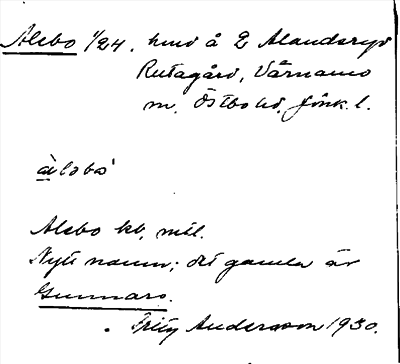 Alebo 1/24, hmd å 2 Alandsryd
Rutagård, Värnamo
m. Östbo hd, Jönk. l.
àlebo
Alebo kb, mtl.
Nytt namn; det gamla är
Gunnars.
Fritz Andersson 1930.